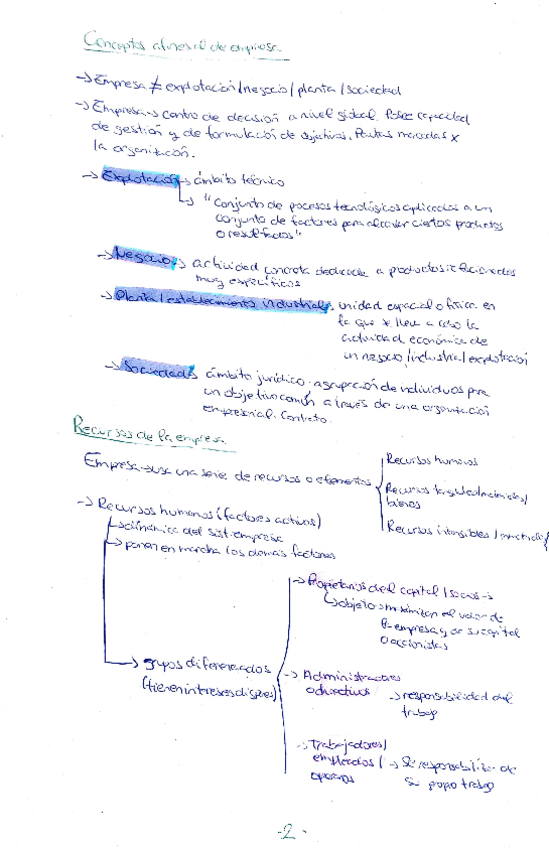 Conceptos afines al de empresa.
→ Empresa ≠ explotación/negocio/planta/sociedad
→ Empresa → centro de decisión a nivel global. Posee capacidad
de gestión y de formulación de objetivos. Pautas marcadas x
la organización.
→ Explotación → ámbito técnico
↳ "Conjunto de procesos tecnológicos aplicados a un
conjunto de factores para alcanzar ciertos productos
o resultados"
→ Negocio: actividad concreta dedicada a productos relacionados
muy específicos
→ Planta/establecimiento industrial: unidad espacial o física en
la que se lleva a cabo la
actividad económica de
un negocio/industria/explotación
→ Sociedad: ámbito jurídico. agrupación de individuos para
un objetivo común a través de una organización
empresarial. Contrato.
Recursos de la empresa
Empresa → usa una serie de recursos o elementos
Recursos humanos
Recursos tangibles/materiales/
bienes
Recursos intangibles/inmateriales
→ Recursos humanos (factores activos)
→ dinámica del sist. empresa
→ ponen en marcha los demás factores
→ grupos diferenciados
(tienen intereses dispares)
→ Propietarios del capital/socios →
↳ objetivo: maximizar el valor de
la empresa y de su capital
o accionistas
→ Administradores
o directivos → responsabilidad del
trabajo
→ Trabajadores/
empleados/ → Se responsabilizan de
operarios su propio trabajo
-2-